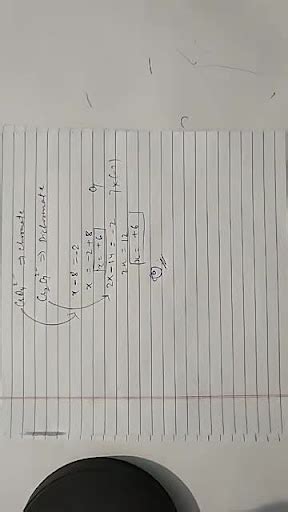 CrO₄²⁻ ⇒ chromate
Cr₂O₇²⁻ ⇒ Dichromate
x - 8 = -2
x = -2 + 8
x = +6
O₇ 7x(-2)
2x - 14 = -2
2x = 12
x = +6